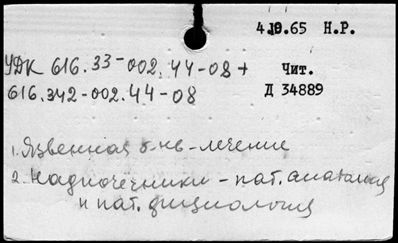 4.10.65 Н.Р.
УДК 616.33-002.44-08 +
Чит.
616.342-002.44-08
Д 34889
1. Язвенная б-нь - лечение
2. Надпочечники - пат. анатомия
и пат. физиология